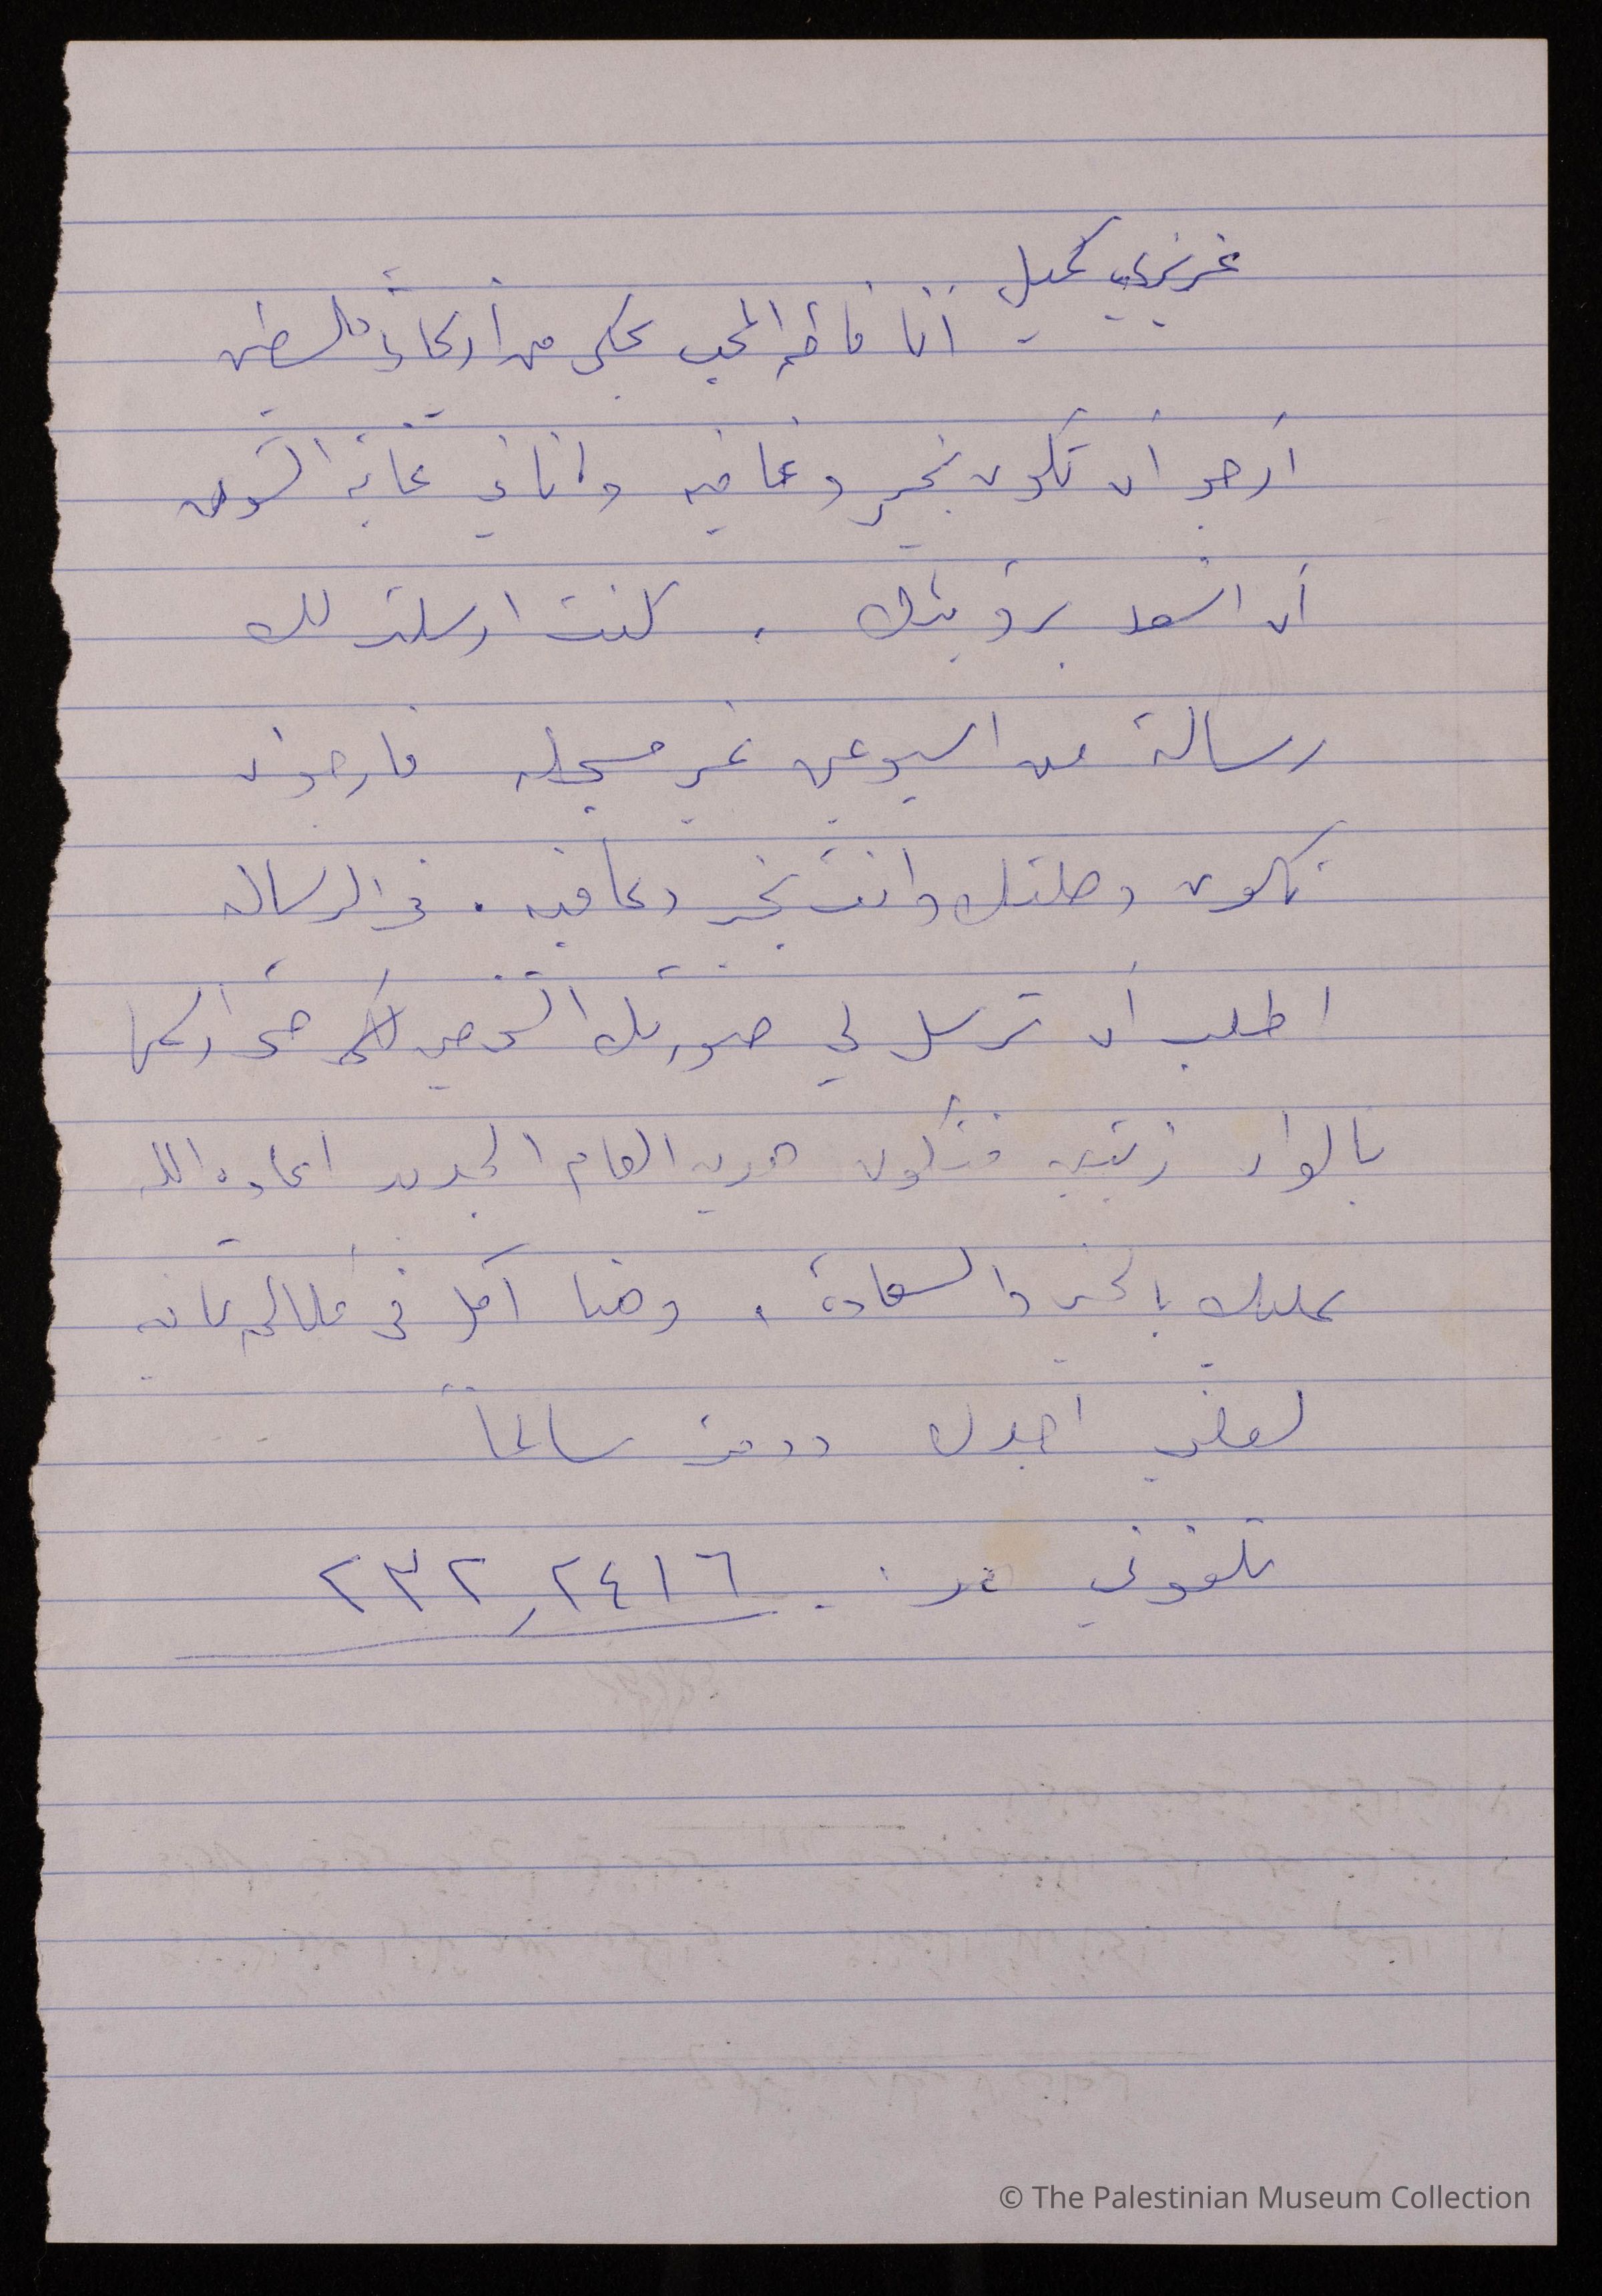 عزيزي كميل
أنا فاطمه المحب بحكي من أريحا في فلسطين
أرجو أن تكون بخير وعافيه وانا في غاية الشوق
أن اسعد برؤيتك . كنت ارسلت لك
رسالة من اسبوعين غير مسجله فارجو ان
تكون وصلتك وانت بخير وعافيه . في الرسالة
اطلب أن ترسل لي صورتك الشخصيه حتى ارسمها
بالوان زيتيه فتكون هدية العام الجديد اعاده الله
عليك بالخير والسعادة . وهنا آمل في مكالمة ثانيه
لعلني اجدك ودمت سالما
تلفوني هو : ٢٣٢٢٤١٦
© The Palestinian Museum Collection